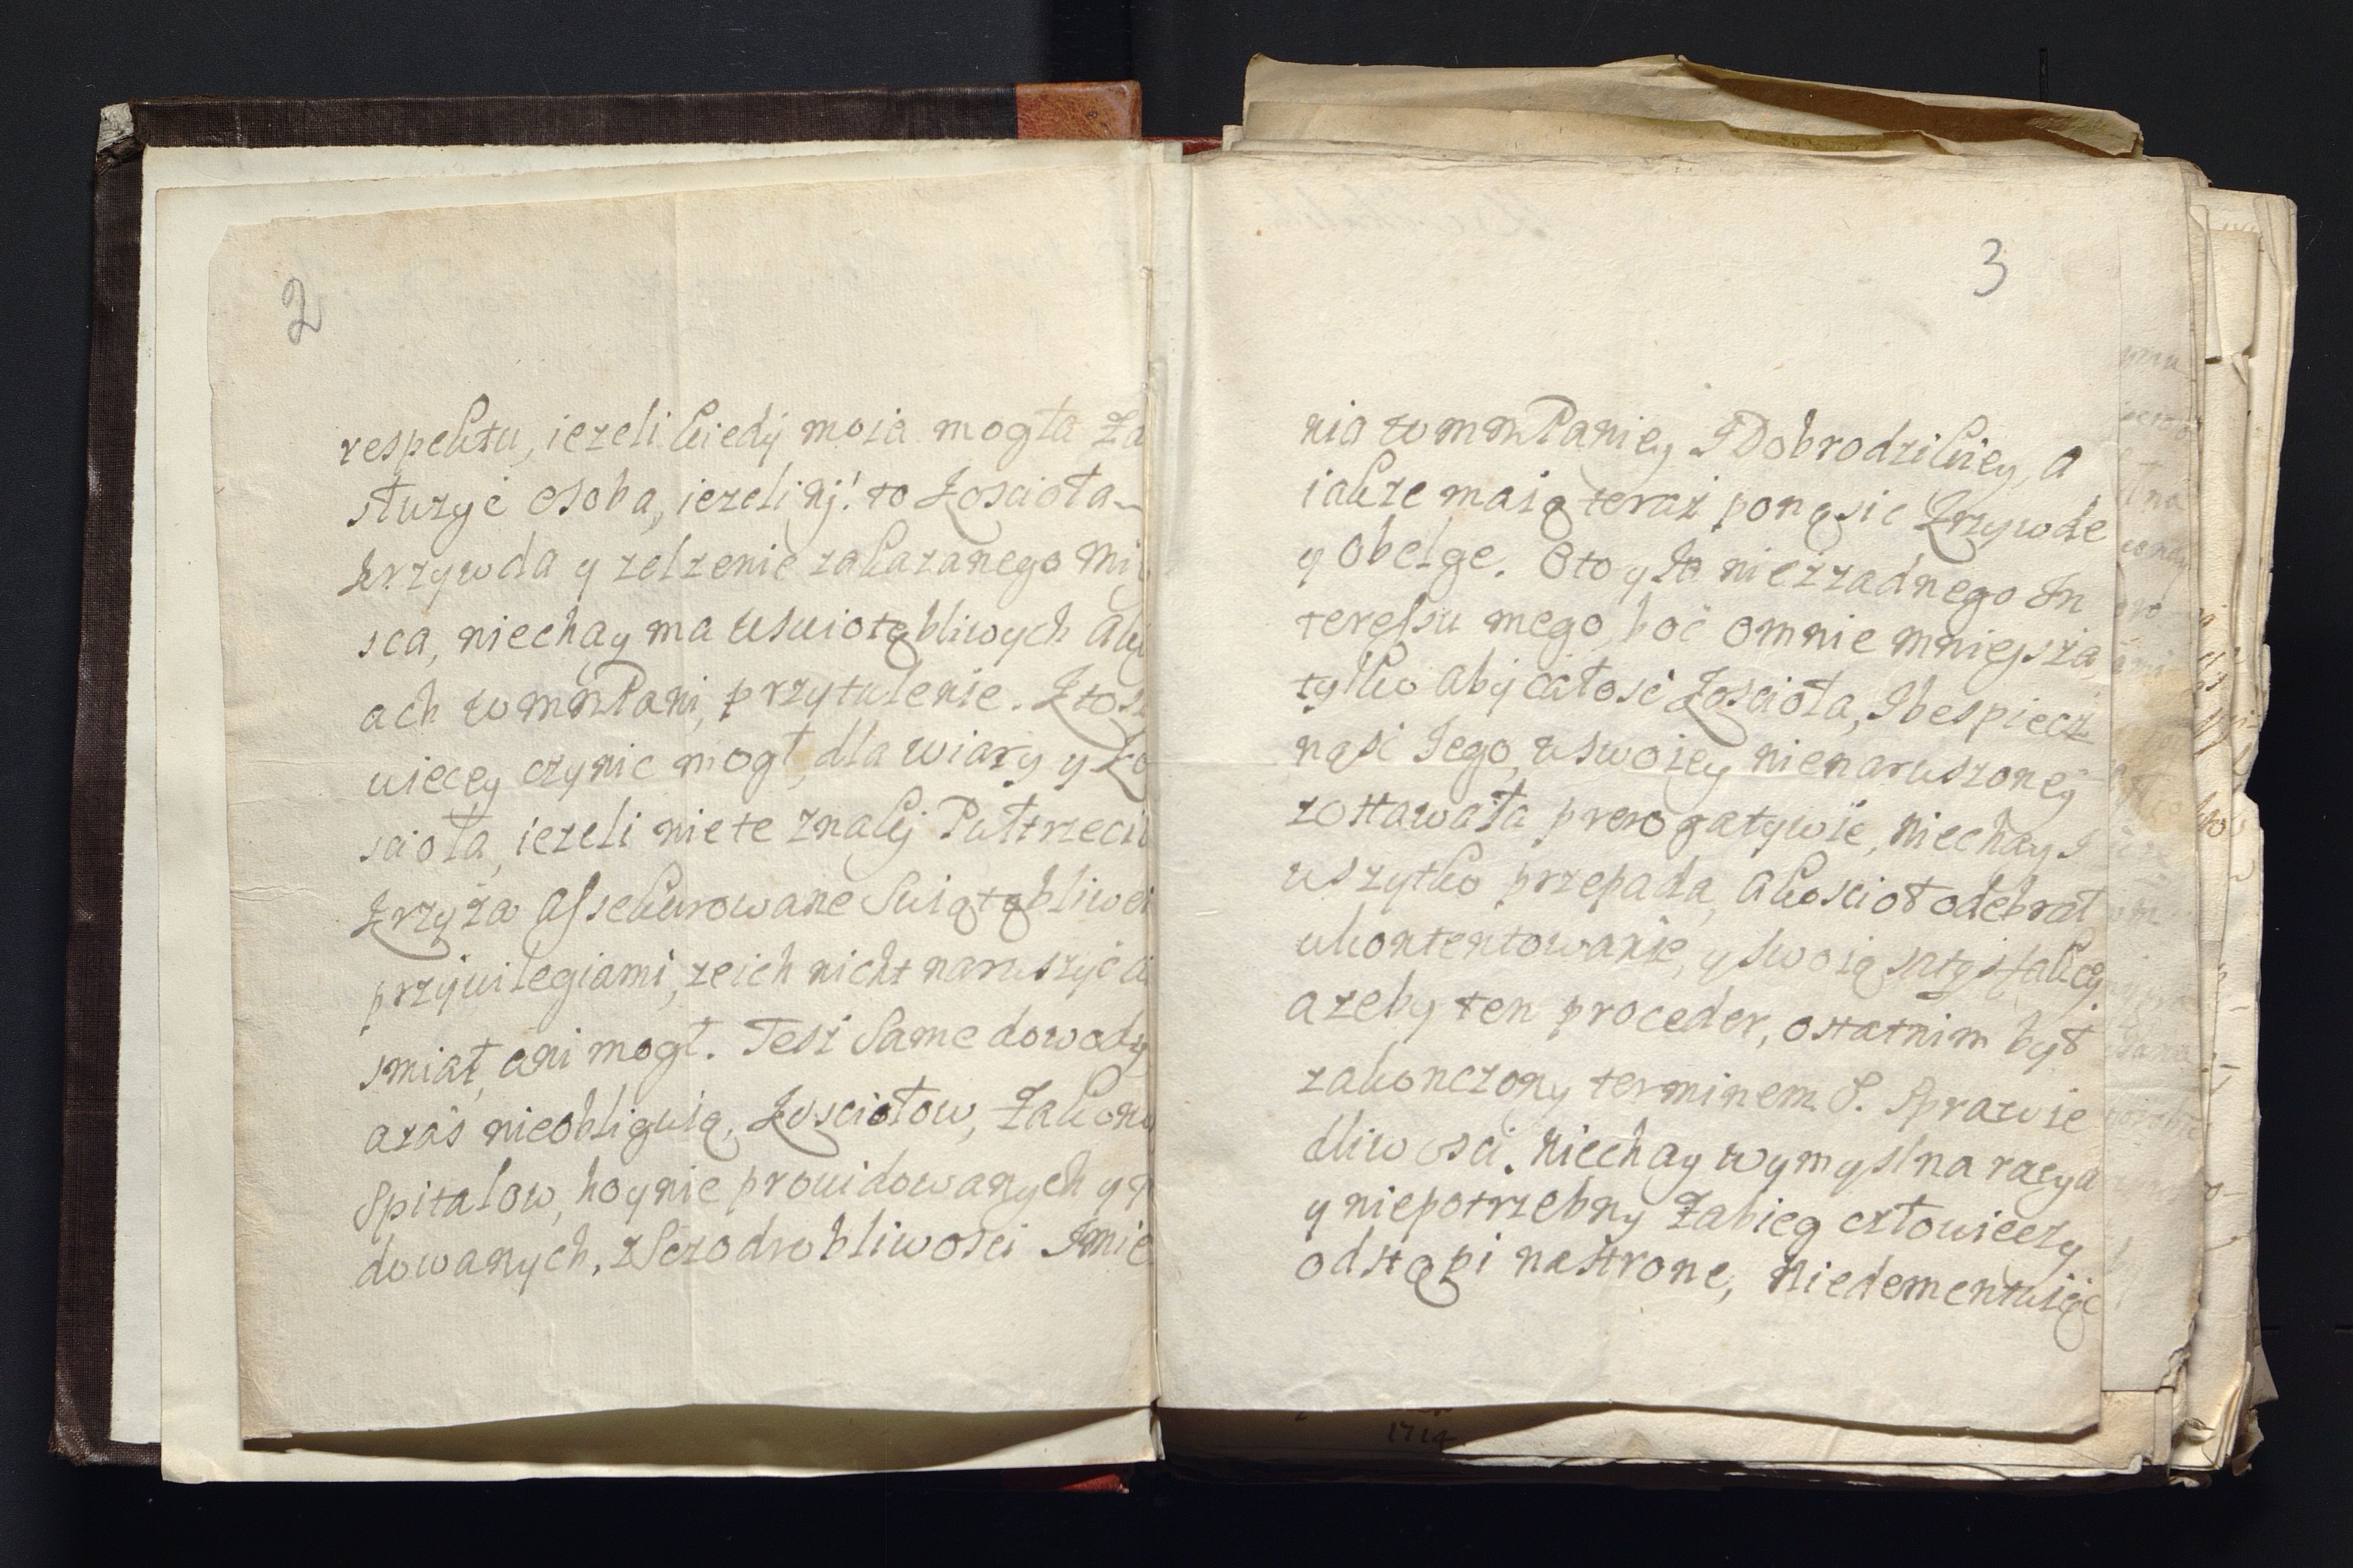 2
respektu, iezeli kiedÿ moia mogła za
słuzyć osoba, iezeli nj! to Kosciola
krzywda y zelzenie zakazanego Mi
sca, niechay ma uswiotębliwych
ach wmmPani, przytulenie. Ktosz
wiecey czynic mogł, dla wiary y Ko
sciola, iezeli nie te znakj Pułtrzeci
Krzyża assekurowane Swiątąbliwei
przÿwilegiami, ze ich nicht naruszyć a
smiał, ani mogł. Tesz Same dowody
azaś nieobliguią, Kosciołow, Zakono
Spitalow, hoynie prouidowanych y
dowanych, z Sczodrobliwosci Imie
3
nia wmmPaniey J Dobrodzikiey, a
iakze maią teraz ponąsic Krzywde
y obelge. Oto y to nie zzadnego In
teressu mego, boć omnie mniejsza,
tylko abÿ całosć Kosciola, J bespiecz
nąść Jego, w swoiey nienaruszoneÿ
zostawała prerogatywie, niechay J
wszytko przepada, a kosciół odebrał
ukontentowanie, y swoią satysfakcÿ
azeby ten proceder, ostatnim był
zakonczony terminem S. Sprawie
dliwosci. niechay wymyslna racya
y niepotrzebny Zabieg człowieczy
odstąpi na strone, Niedementuiąc
1714